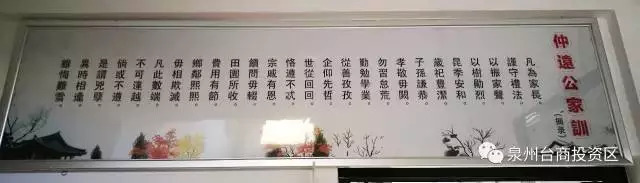 仲遠公家訓
（摘录）
凡為家長。
謹守禮法。
以振家聲。
以樹勛烈。
昆季安和。
歲祀豐潔。
子孫謙恭。
孝敬毋闕。
勿習怠荒。
勤勉學業。
從善孜孜。
企仰先哲。
世從回回。
恪遵不忒。
宗戚有恩。
饋問毋輟。
田園所收。
費用有節。
鄉鄰熙熙。
毋相欺滅。
凡此數端。
不可違越。
倘或不遵。
是謂兇孽。
異時相逢。
雖悔難雪。
泉州台商投资区